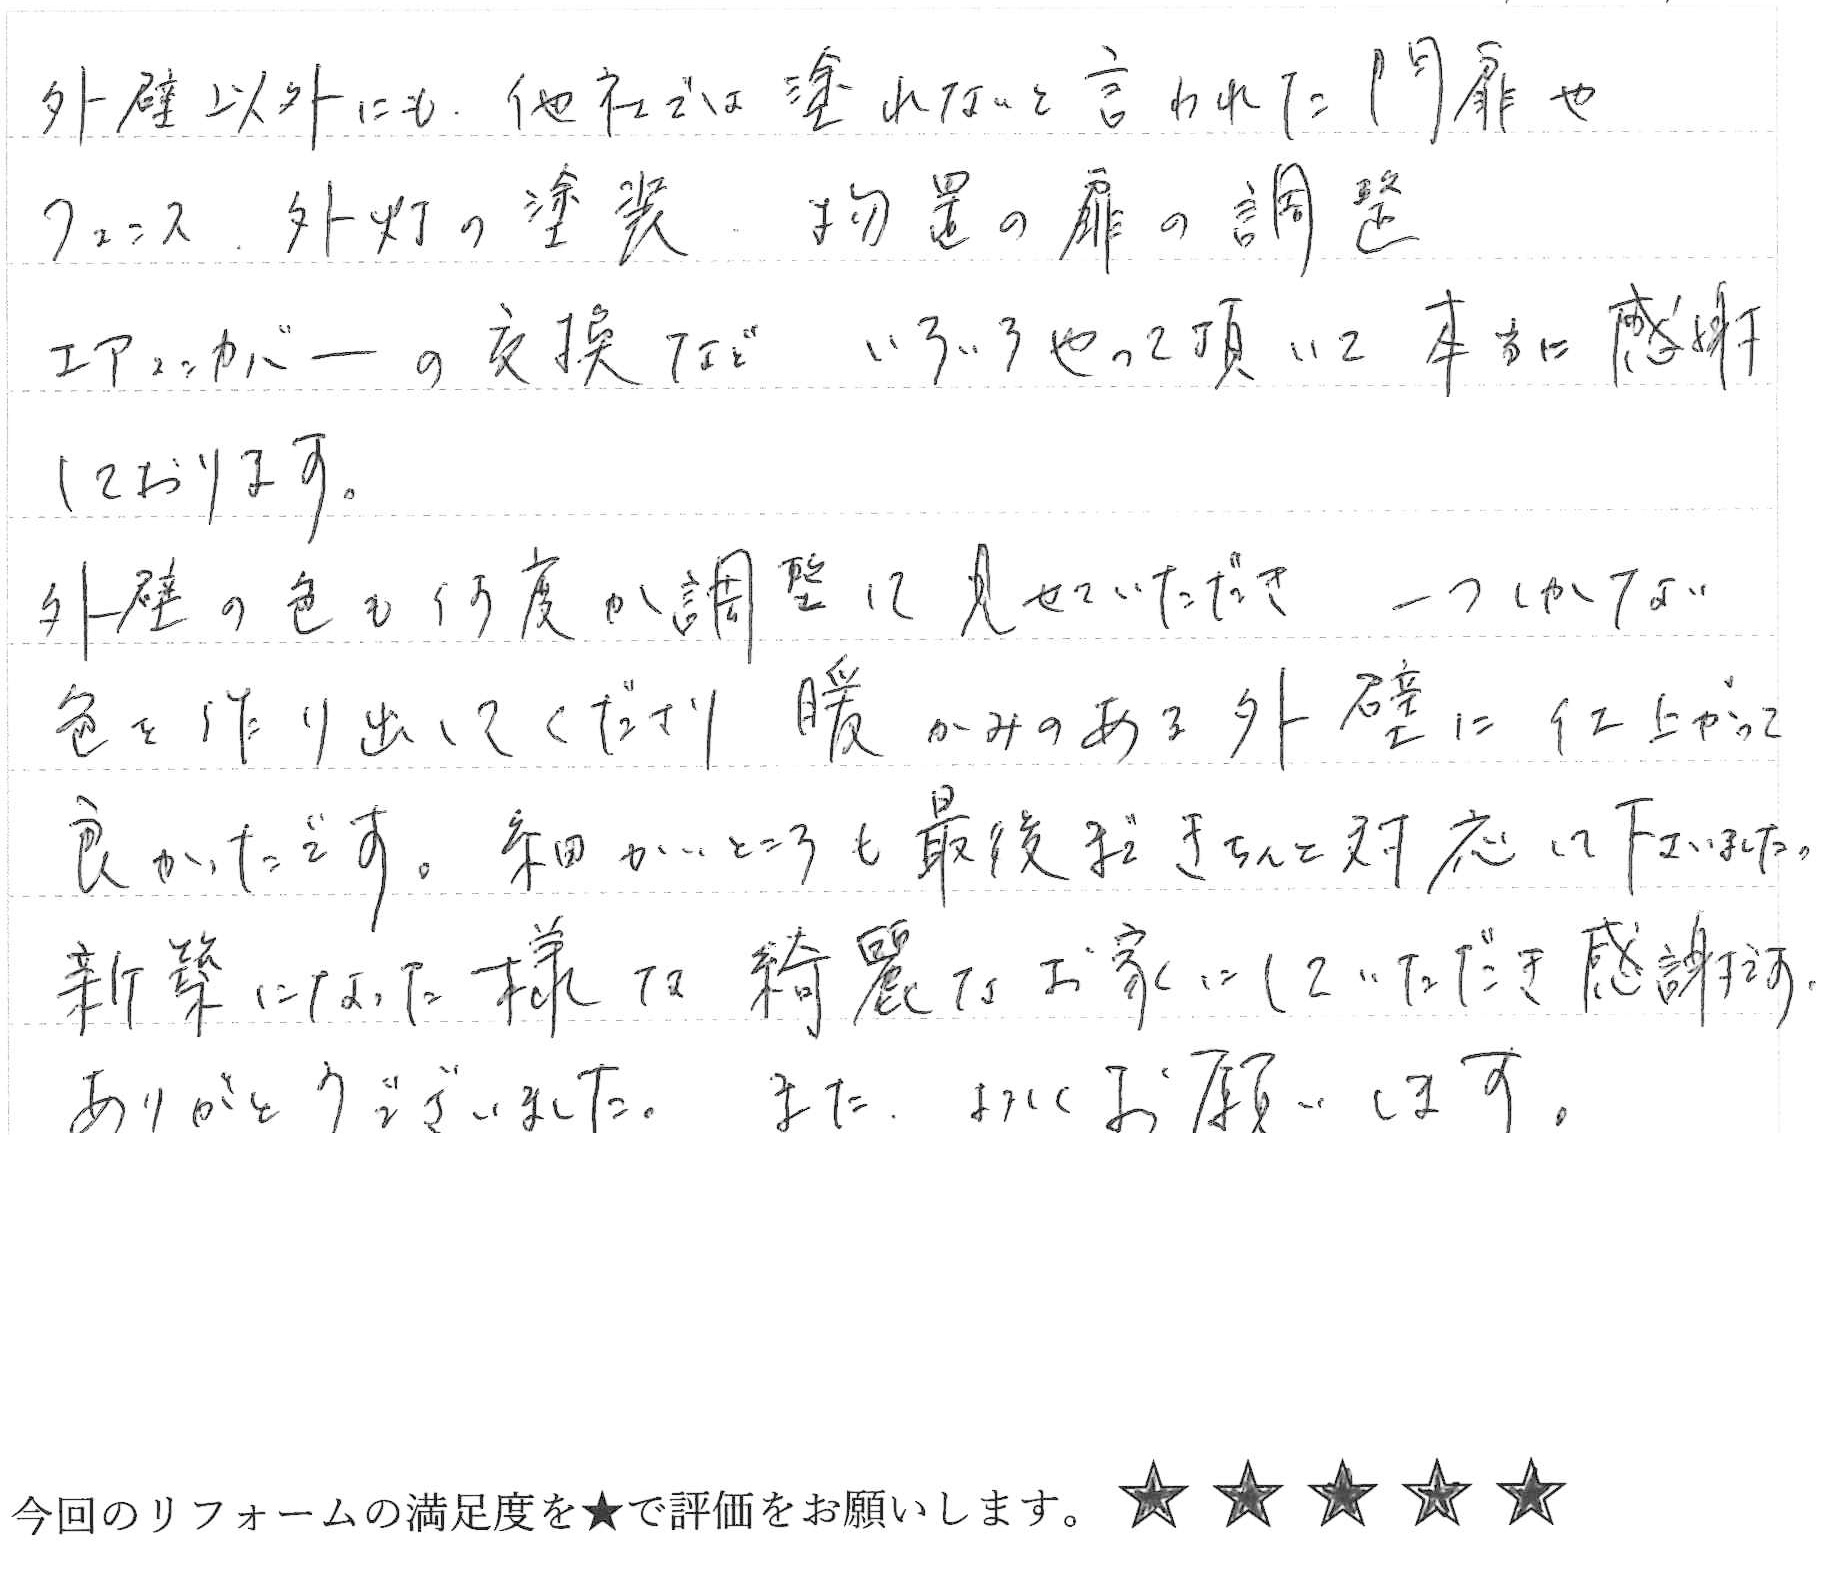 外壁以外にも、他社では塗れないと言われた門扉や
フェンス、外灯の塗装、物置の扉の調整
エアコンカバーの交換など いろいろやって頂いて本当に感謝
しております。
外壁の色も何度か調整して見せていただき 一つしかない
色を作り出してくださり 暖かみのある外壁に仕上がって
良かったです。細かいところも最後まできちんと対応して下さいました。
新築になった様な綺麗なお家にしていただき感謝です。
ありがとうございました。 また、よろしくお願いします。
今回のリフォームの満足度を★で評価をお願いします。★★★★★